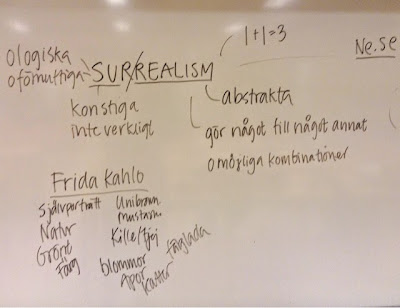 1+1=3
Ne.se
ologiska
oförnuftiga
SUR/REALISM
abstrakta
konstiga
inte verkligt
gör något till något annat
omöjliga kombinationer
Frida Kahlo
Självporträtt
Natur
Grönt
Färg
Unibrown
mustasch
Kille/tjej
blommor
Apor
Katter
färglada